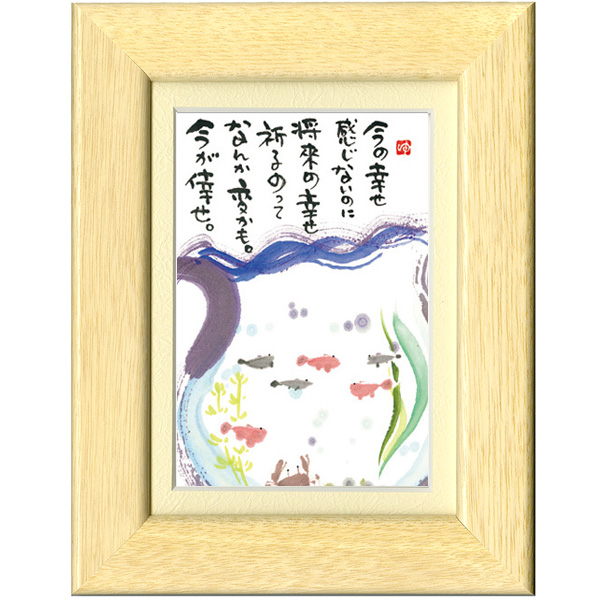 今の幸せ
感じないのに
将来の幸せ
祈るのって
なんか変かも。
今が倖せ。